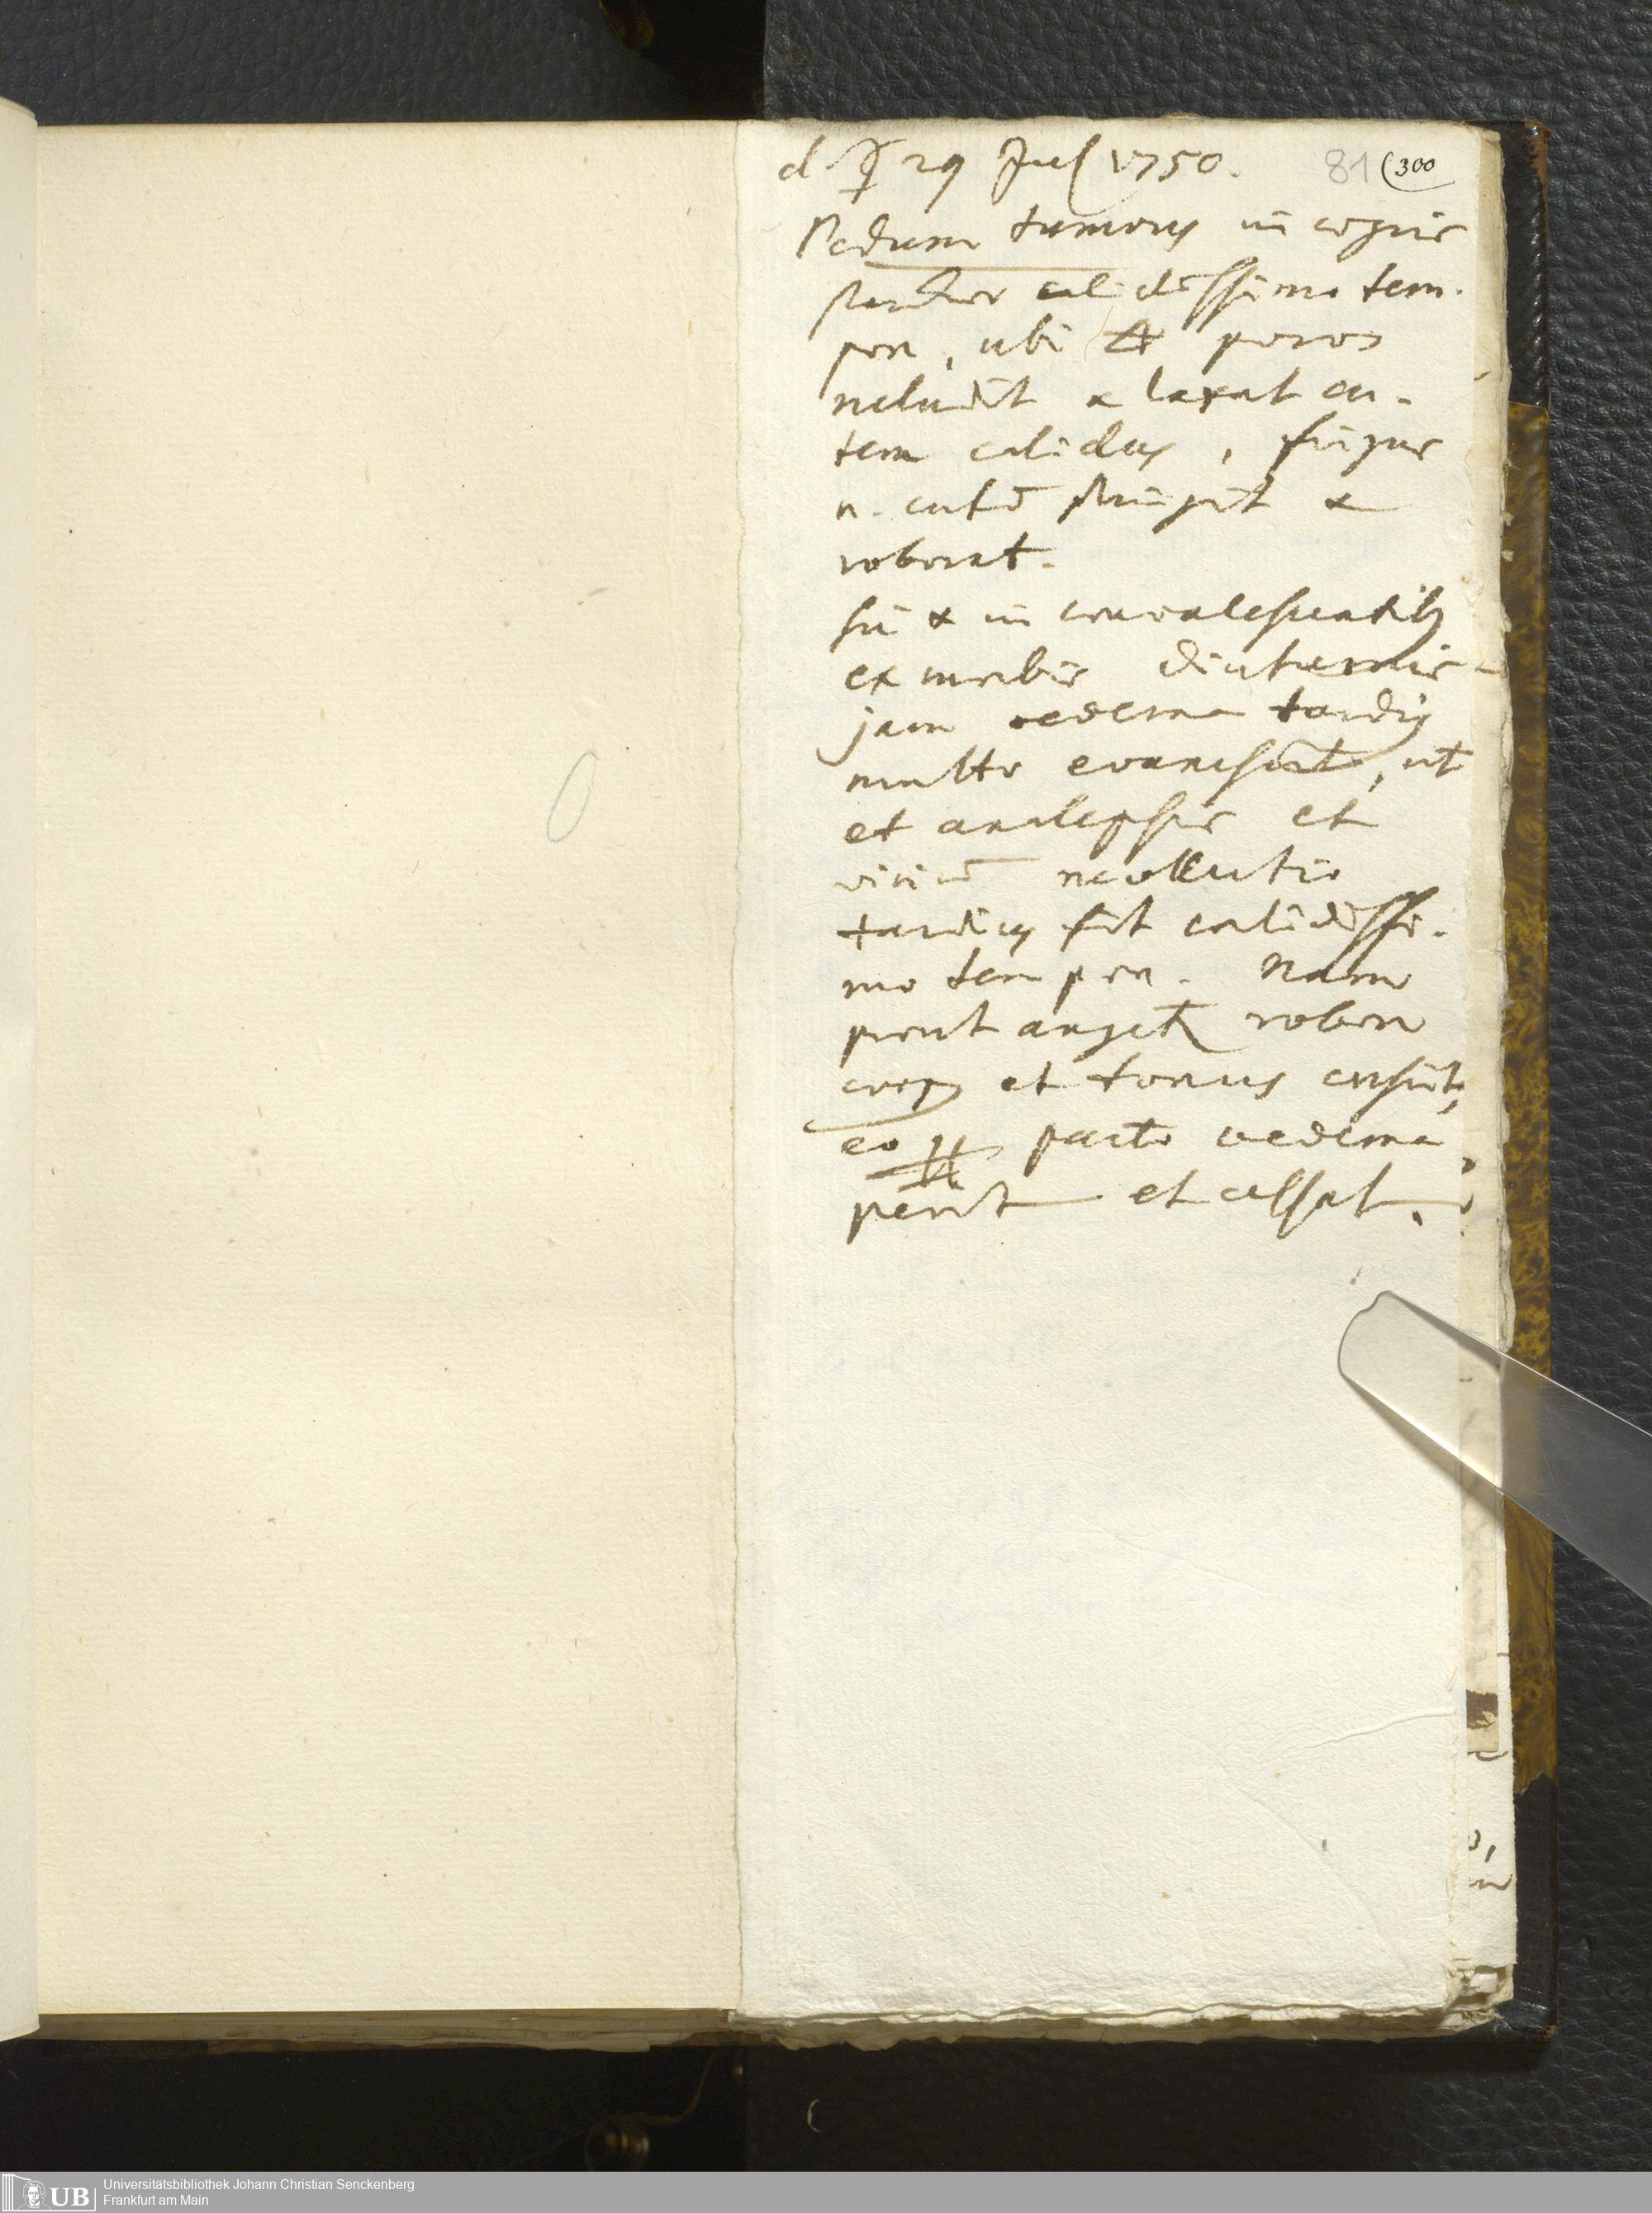 d. ☿ 29 Jul 1750. 81 (300
Pedum tumores in
calidissimo tem-
pore, ubi poros
recludit & laxat cu-
tem calidus, frigus
n. cutē stringit &
roborat.
Sic & in convalescentib9
ex morbis diuturnis
jam oedema tardi9
multo evanescit, ut
et analepsis et
viriū recollectio
tardius fit calidissi-
mo tempore. Nam
prout augetr robur
corp9 et tonus crescit,
eo pacto oedema
perit et cessat.
UB
Universitätsbibliothek Johann Christian Senckenberg
Frankfurt am Main